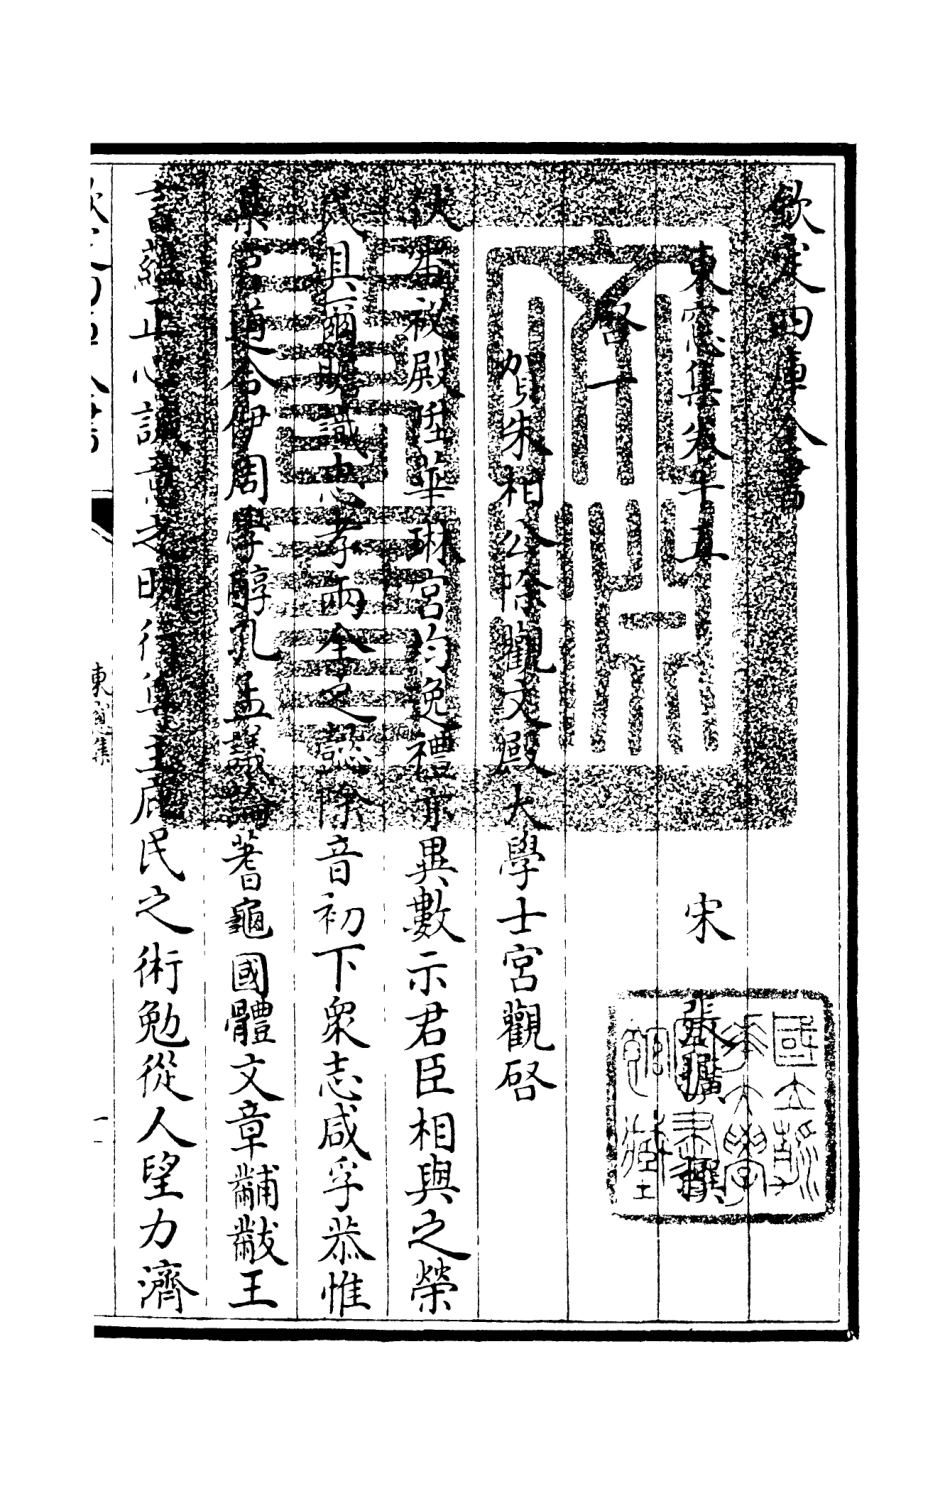 欽定四庫全書
東窗集卷十五　宋　張擴　撰
啓一
賀朱相公除觀文殿大學士宮觀啓
伏審祕殿陞華琳宮均逸禮亦異數示君臣相與之榮
民具爾瞻識忠孝兩全之懿除音初下衆志咸孚恭惟
某官道合伊周學醇孔孟議論蓍龜國體文章黼黻王
言蘊正心誠意之明行尊主庇民之術勉從人望力濟
欽定四庫全書
東窗集
一